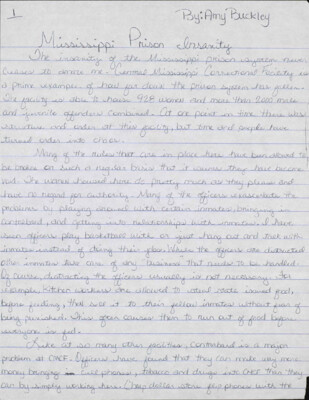 1
By: Amy Buckley
Mississippi Prison Insanity
The insanity of the Mississippi prison system never
ceases to amaze me. Central Mississippi Correctional Facility is
a prime example of how far down the prison system has fallen.
This facility is able to house 928 women and more than 2,000 male
and juvenile offenders combined. At one point in time there was
structure and order at this facility, but time and people have
turned order into chaos.
Many of the rules that are in place here have been allowed to
be broken on such a regular basis that it seems they had become
null. The women housed here do pretty much as they please and
have no regard for authority. Many of the officers
problem by playing around with certain inmates, bringing in
contraband, and getting into relationships with inmates. I have
seen officers play basketball with or just hang out and talk with
inmates instead of doing their jobs. While the officers are distracted
other inmates take care of any business that needs to be handled.
Of course, distracting the officers usually is not necessary. For
example, kitchen workers are allowed to steal
before feeding, then sell it to their fellow inmates without fear of
being punished. This often causes them to run out of food before
everyone is fed.
Like at so many other facilities, contraband is a major
problem at CMCF. Officers have found that they can make way more
money bringing in cell phones, tobacco and drugs into CMCF than they
can by simply working here. Cheap dollar store flip phones with the